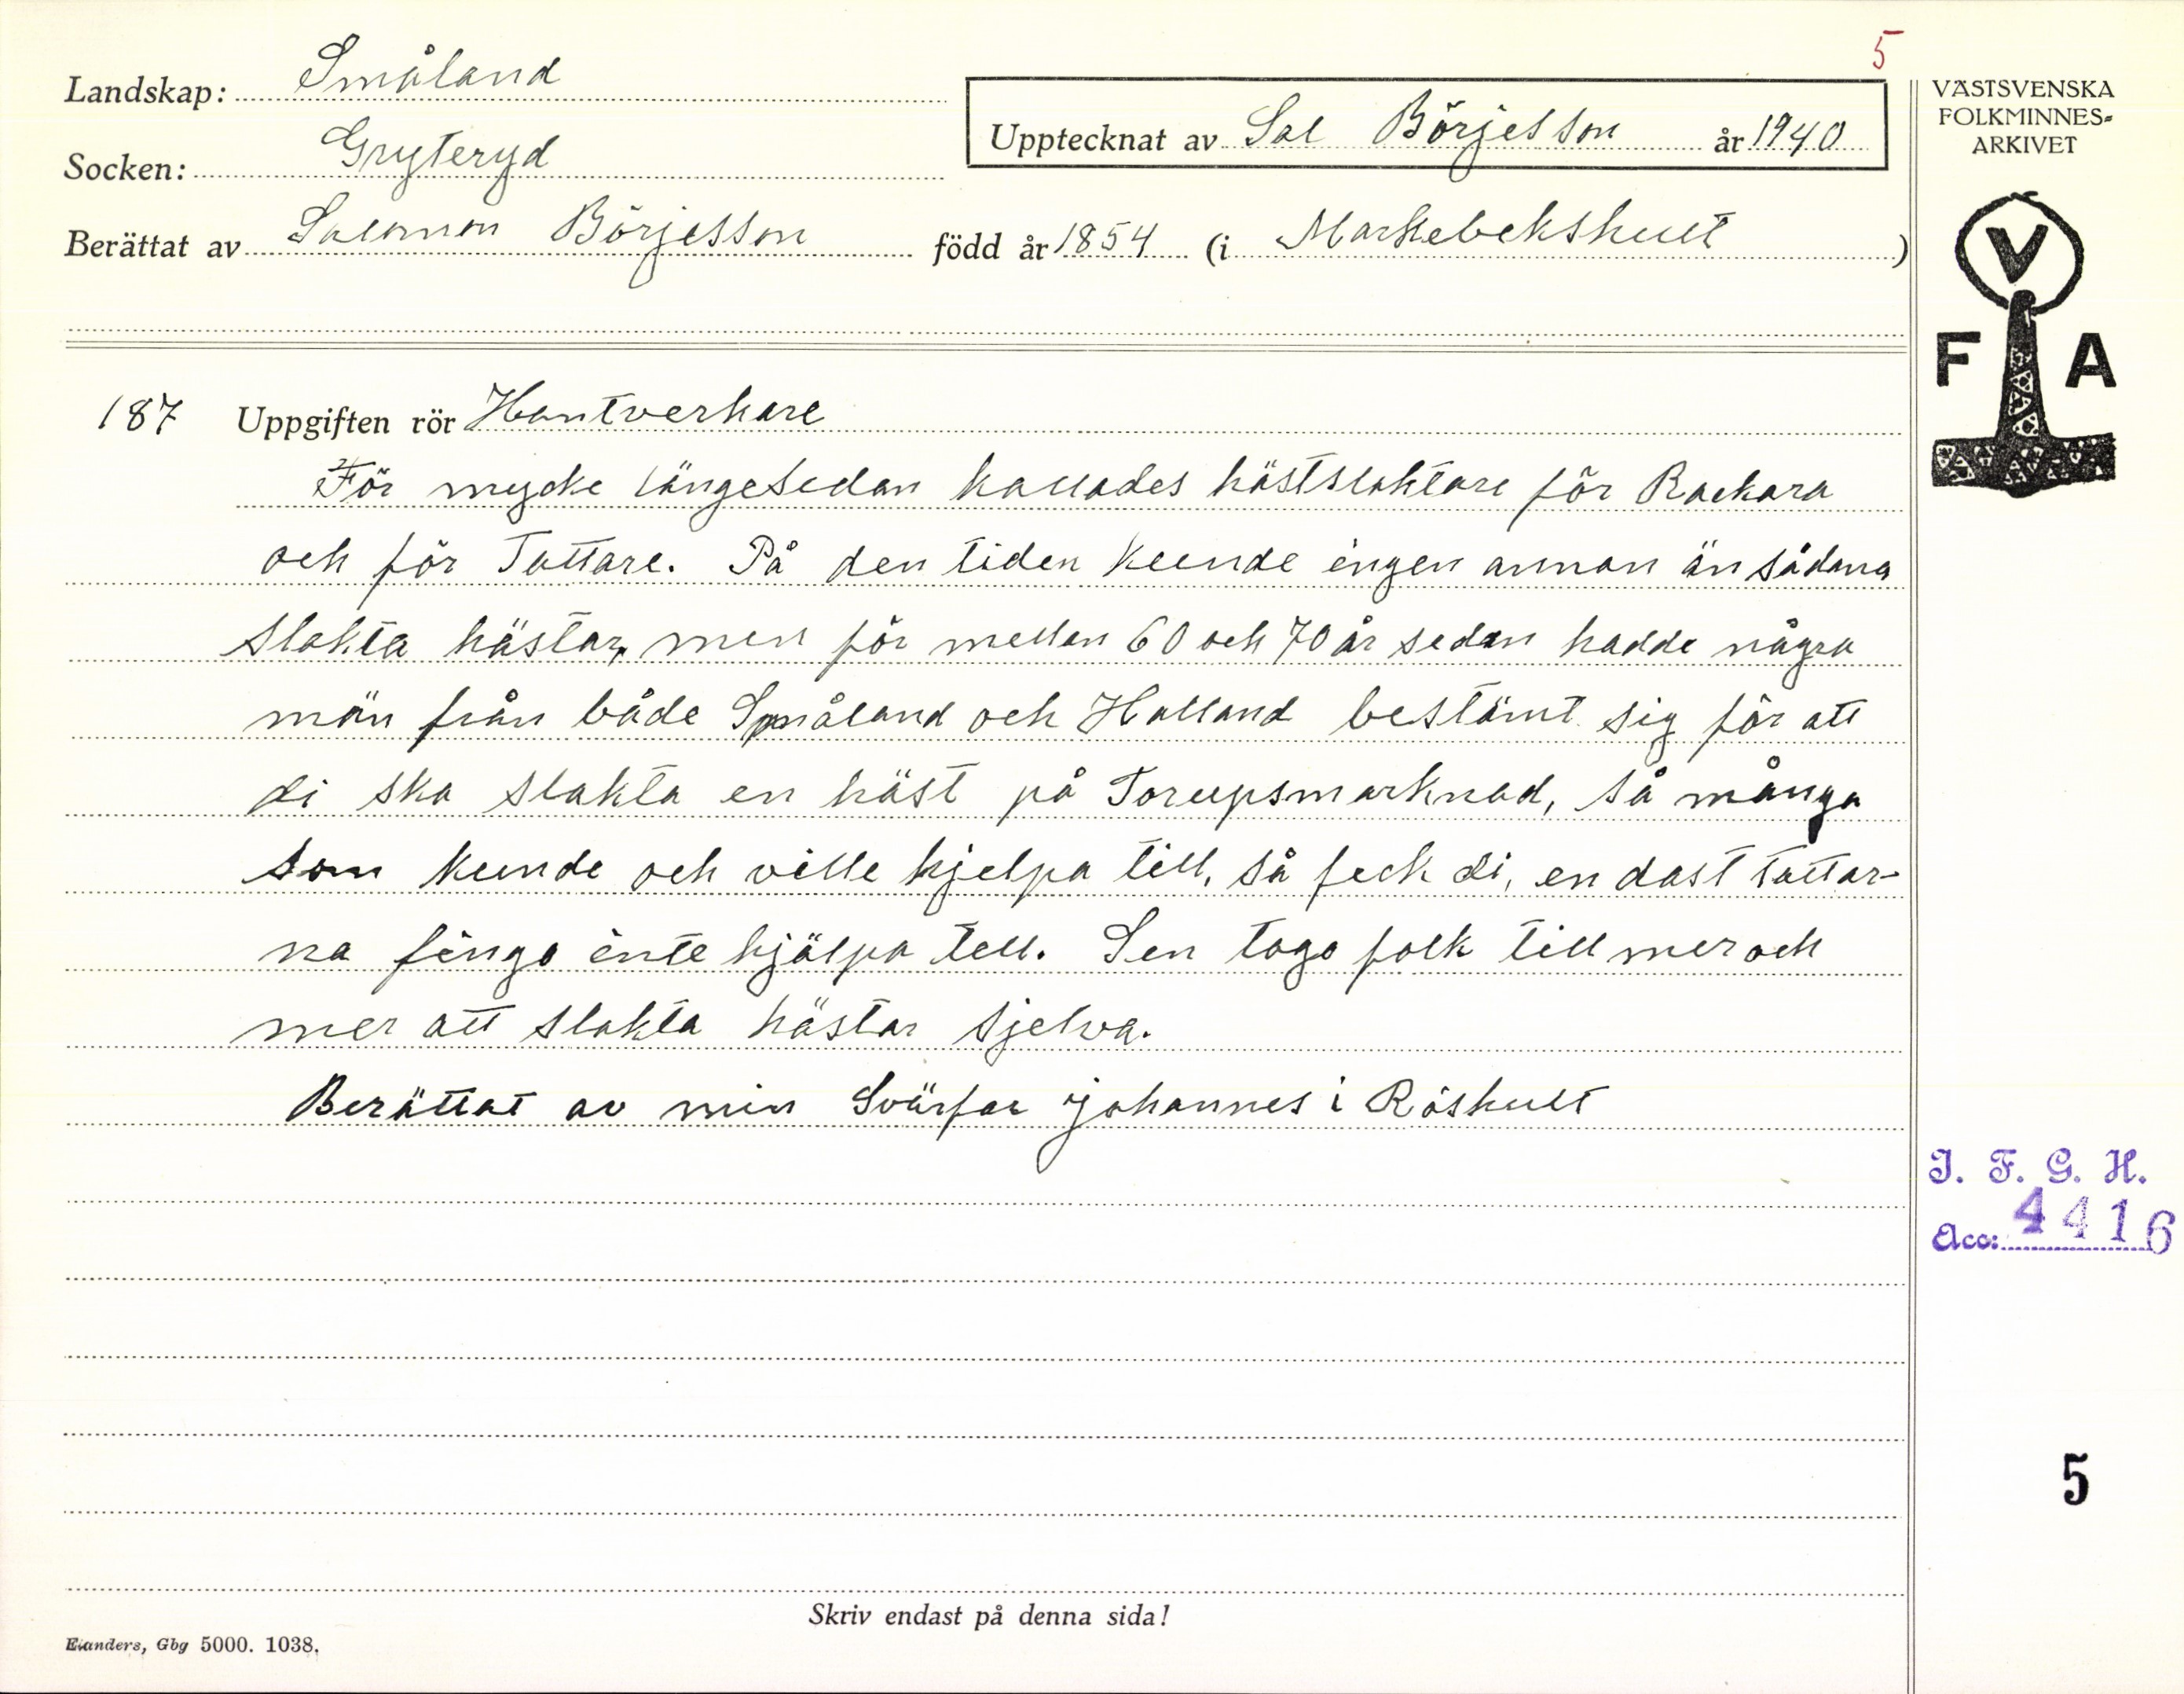 5
Landskap: Småland
Socken: Gryteryd
Upptecknat av Sal Börjesson år 1940
Berättat av Salomon Börjesson född år 1854 (i Markebekshult)
VÄSTSVENSKA
FOLKMINNES-
ARKIVET
V
F A
187 Uppgiften rör Hantverkare
För mycke längesedan kallades hästslaktare för Rackara
och för Tattare. På den tiden kunde ingen annan än sådana
slakta hästar, men för mellan 60 och 70 år sedan hadde några
män från både Småland och Halland bestämt sig för att
di ska slakta en häst på Torupsmarknad, så många
som kunde och ville hjelpa till, så feck di, endast tattar-
na fingo inte hjälpa tell. Sen togo folk till mer och
mer att slakta hästar sjelva.
Berättat av min Svärfar Johannes i Röshult
I. F. G. H.
Acc: 4416
5
Skriv endast på denna sida!
Elanders, Gbg 5000. 1038.